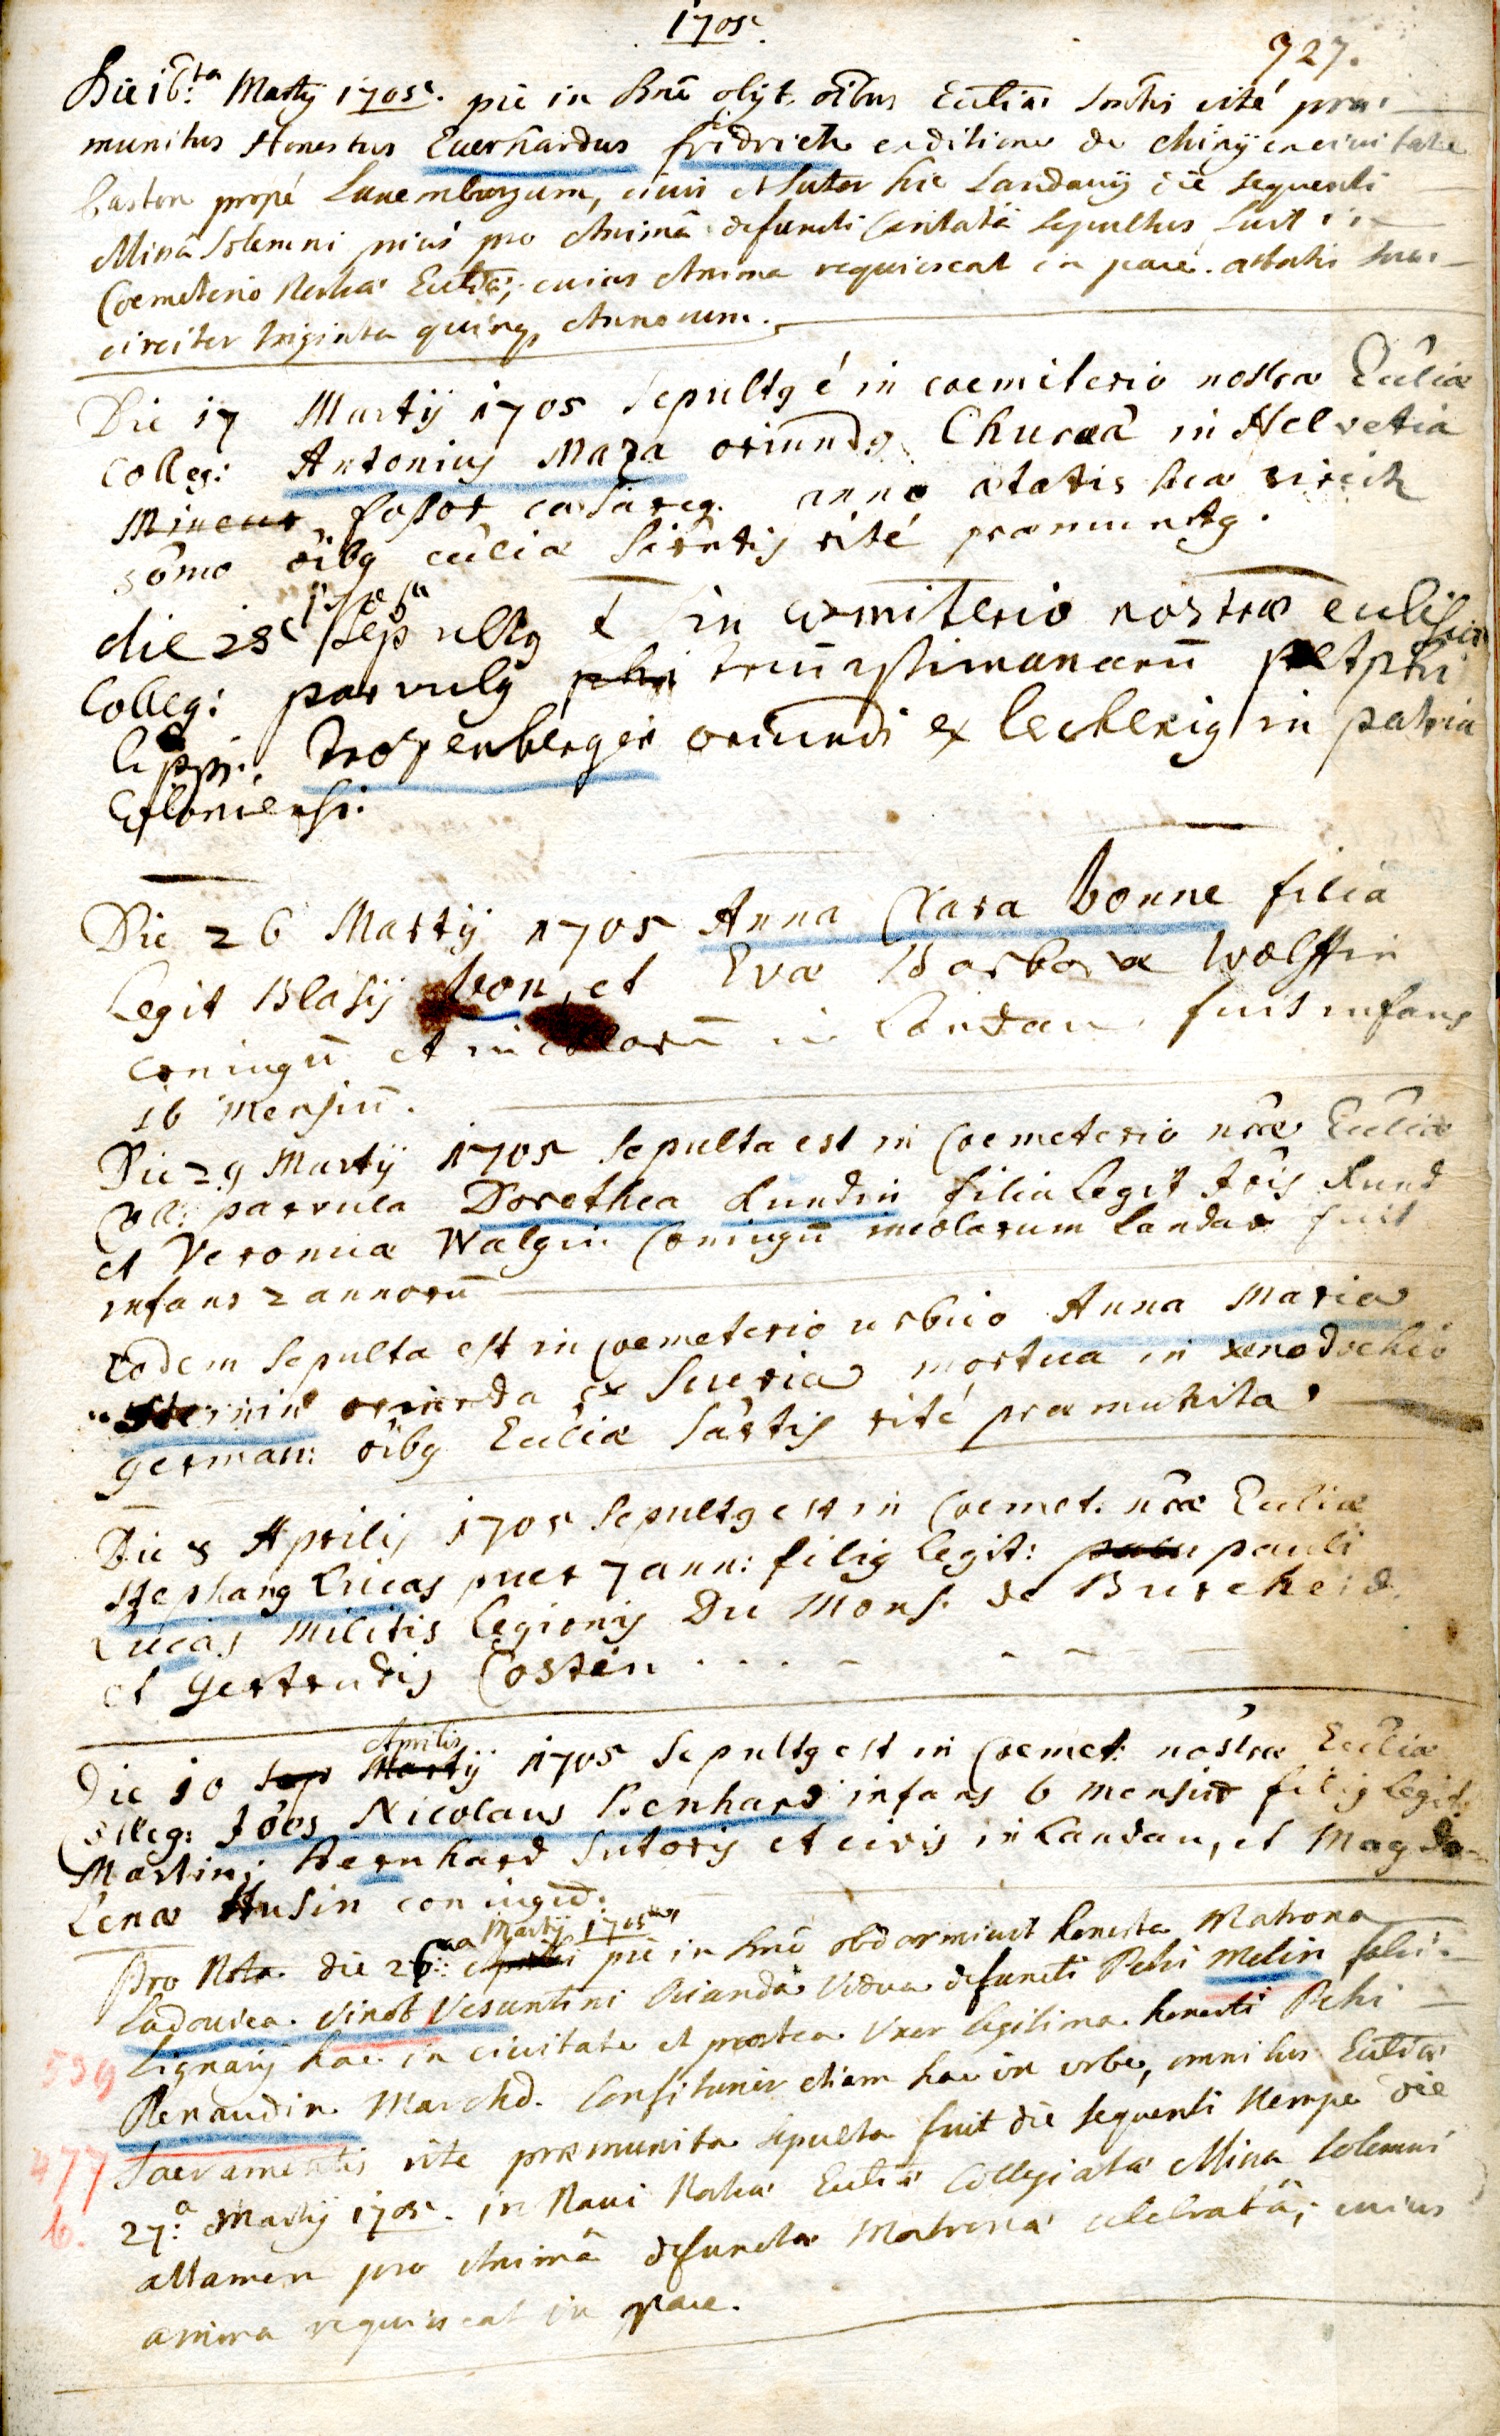 1705.
727.
Die 16:ta Martij 1705. pie in Dnō obijt ōibus Eccliæ Sācntis rité præ-
munitus Honestus Everhardus fridrich ex ditione de Chiny ex civitate
baston propé Luxemburgum, civis et sutor hic Landavij die sequenti
Missâ Solemni prius pro Animâ defuncti Cantatâ sepultus fuit in
Coemeterio Nostræ Eccliæ, cuius Anima requiescat in pace. ætatis suæ
circiter triginta quinq, Annorum.
Die 17 Martij 1705 Sepultg é in coemiterio nostræ Eccliæ
Colleg: Antonius Maza oriundg Churaâ in Helvetia
Mineur fossor cæsareg. anno ætatis suæ circit
ōibg eccliæ Sācntis rité præmunitg.
1705
die 25 Sepultg e in cœmiterio nostræ ecclesiæ
Colleg: parvulg phi
lippi. Trozenberger oriundi ex lechenig in patria
Coloniensi.
Die 26 Martij 1705 Anna Clara bonne filia
Legit Blasij bon, et Eva Barbara Wolffin
coniugū et incolarū in Landau, fuit infans
16 Mensiū.
Die 29 Martij 1705 Sepulta est in Coemeterio nrae Eccliæ
Coll: parvula Dorethea Kundin filia Legit Jōis Kund
et Veronica Walgin Coniugū incolarum Landau fuit
infans 2 annorū
Eodem Sepulta est in Coemeterio urbico Anna Maria
oriunda ex Sueria mortua in xenodochio
german: ōibg Eccliæ Sāctis rité præmunita
Die 8 Aprilis 1705 Sepultg est in Coemet. nrae Eccliæ
Stephang Lucas puer 7 ann: filig legit: pauli
Lucas Militis legionis Du Mons. de Burcheid.
et Gertrudis Costen . . . - - -
Aprilis
Die 10 Sep Martij 1705 Sepultg est in Coemet: nostræ Eccliæ
Colleg: Jōes Nicolaus Benhard infans 6 mensiū filig legit:
Martini Bernhard Sutoris et civis in Landau, et Magda-
lenæ Husin coniugū.
Martij 1705
Pro Nota die 26:ta Aprili pie in Dnō obdormivit honesta Matrona
Ludovica Vinot Vesuntini Oriunda Vidua defuncti Petri Melin fabri
lignarij hac in civitate et postea Uxor legitima honesti Petri
Renaudin Marchd. Confiturier etiam hac in urbe, omnibus Eccliæ
Sacramentis rite præmunita sepulta fuit die sequenti Nempe die
27:a Martij 1705. in Navi Nostræ Eccliæ Collegiatæ Missa solemni
attamen pro Animâ defunctæ Matronæ celebratâ; cuius
anima requiescat in pace.
539
477
b.